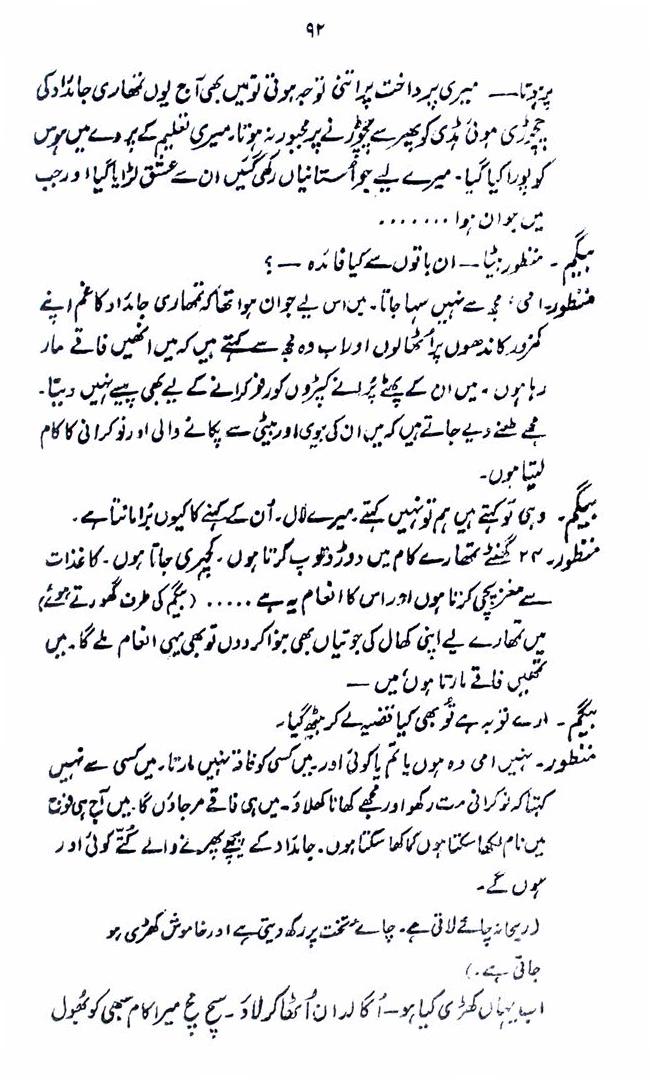 ۹۲
پر ہوتا — میری پرداخت پر اتنی توجہ ہوتی تو میں بھی آج یوں تمھاری جائداد کی
چچڑی ہوئی ہڈی کو پھر سے چچوڑنے پر مجبور نہ ہوتا۔ میری تعلیم کے پردے میں ہوس
کو پورا کیا گیا۔ میرے لیے جو اُستانیاں رکھی گئیں ان سے عشق لڑایا گیا اور جب
میں جوان ہوا .......
بیگم ۔ منظور بیٹا — ان باتوں سے کیا فائدہ — ؟
منظور۔ امی، مجھ سے نہیں سہا جاتا۔ میں اس لیے جوان ہوا تھا کہ تمھاری جائداد کا غم اپنے
کمزور کاندھوں پر اُٹھا لوں اور اب وہ مجھ سے کہتے ہیں کہ میں انھیں فاقے مار
رہا ہوں ۔ میں ان کے پھٹے پُرانے کپڑوں کو رفو کرانے کے لیے بھی پیسے نہیں دیتا۔
مجھے طعنے دیے جاتے ہیں کہ میں ان کی بیوی اور بیٹی سے پکانے والی اور نوکرانی کا کام
لیتا ہوں۔
بیگم۔ وہی تو کہتے ہیں ہم تو نہیں کہتے ۔ میرے لال۔ اُن کے کہنے کا کیوں بُرا مانتا ہے ۔
منظور۔ ۲۴ گھنٹے تمھارے کام میں دوڑ دھوپ کرتا ہوں ۔ کچہری جاتا ہوں ۔ کاغذات
سے مغز پچی کرتا ہوں اور اس کا انعام یہ ہے ..... (بیگم کی طرف گھورتے ہوئے)
میں تمھارے لیے اپنی کھال کی جوتیاں بھی بنوا کر دوں تو بھی یہی انعام ملے گا۔ میں
تمھیں فاقے مارتا ہوں، میں —
بیگم ۔ ارے توبہ ہے تُو بھی کیا قضیہ لے کر بیٹھ گیا۔
منظور۔ نہیں امی وہ ہوں یا تم یا کوئی اور۔ میں کسی کو فاقہ نہیں مارتا۔ میں کسی سے نہیں
کہتا کہ نوکرانی مت رکھو اور مجھے کھانا کھلاؤ۔ میں ہی فاقے مر جاؤں گا۔ میں آج ہی فوج
میں نام لکھا سکتا ہوں کما کھا سکتا ہوں۔ جائداد کے پیچھے پھرنے والے کُتّے کوئی اور
ہوں گے ۔
(ریحانہ چائے لاتی ہے۔ چائے تخت پر رکھ دیتی ہے اور خاموش کھڑی ہو
جاتی ہے۔)
اب یہاں کھڑی کیا ہو — اُگالدان اُٹھا کر لاؤ ۔ سچ مچ میرا کام سبھی کو بھول